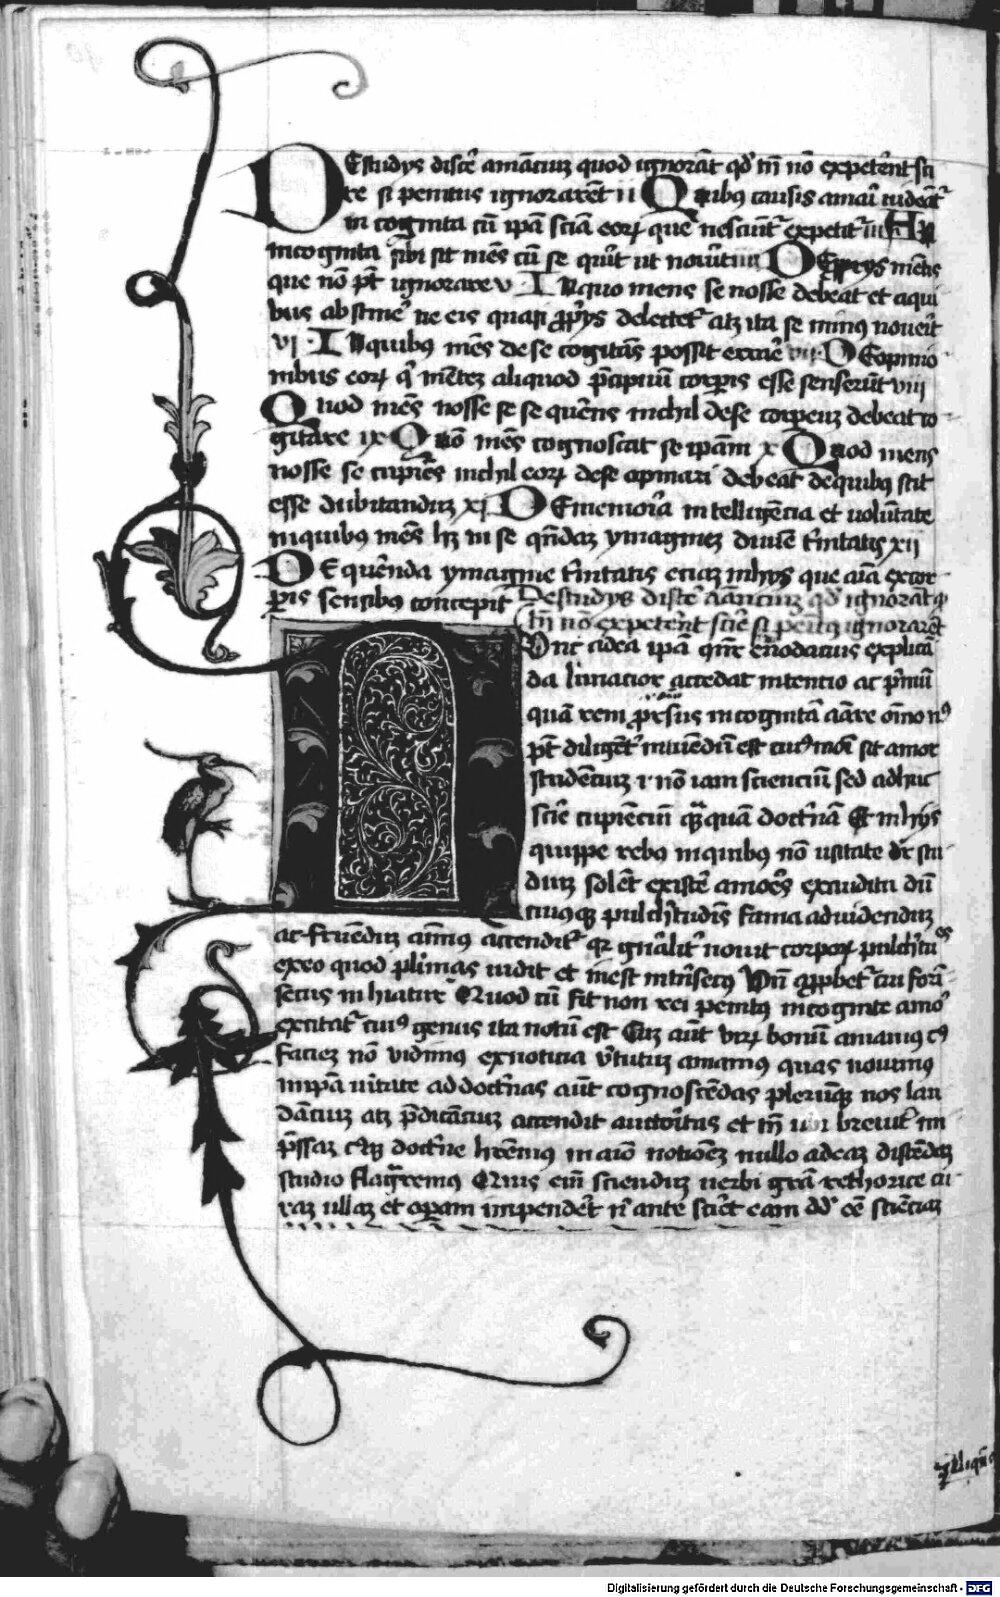 DE studijs discē amāciuz quod ignorāt qd' tn̄ nō expeterēt sci
re si penitus ignorarēt ii Quibus causis amari videāt'
in cognita cū ip̄am sciām eoꝝ que nesciūt' expetit' iii An
incognita sibi sit mēs cū se querit ut noverit iiii DE hijs mēte
que nō pt̄ ignorare v · In quo mens se nosse debeat et a qui
bus abstinē' ne eis quasi pprijs delectet' atqꝫ ita se minus noverit
vi · In quibus mēs de se cogitās possit errare vii DE opinio
nibus eoꝝ q' mētez aliquod p̄cipuū corporis esse senserūt viii
Quod mēs nosse se se querēs nichil de se corpeuz debeat co
gitare ix Quō mēs cognoscat se ipsam x Quod mens
nosse se cupiēs nichil eoꝝ de se opinari debeat de quibus scit
esse dubitanduz xi DE memoria intelligencia et volūtate
in quibus mēs hꝫ in se qn̄daz ymaginez divine trinitatis xii
DE querenda ymagine trinitatis eciaz in hijs que aīa ex cor
poris sensibus concepit De studijs discē amanciuz qd' ignorāt qd'
tn̄ nō expeterēt scire si penitus ignorarēt
Nunc ad ea ip̄a q̄nter enodacius explicā
da limatior accedat intentio ac primū
quā rem prorsus incognitā amare omnō n'
pt̄ diligēt' intuendū est cuiusmōi sit amor
studenciuz i nō iam scienciū sed adhuc
scire cupiēciū quāquā doctrinā Et in hijs
quippe rebus in quibus nō usitate dr̄ stu
diuz solēt existē amores exauditu dū
cuiusqꝫ pulchritudinis fama ad videnduz
ac fruenduz animus accendit' qr gn̄alit' novit corpoꝝ pulchritudines
ex eo quod plurimas vidit et inest intrinsecus unde approbet' cui forin
secus inhiatur Quod cū fit non rei penitus incognite amor
excitat' cuius genus ita notū est Cuz aūt viꝝ bonū amamus cuius
faciez nō vidimus ex noticia virtutuz amamus quas novimus
in ip̄a veritate ad doctrinas aūt cognoscēdas plerumqꝫ nos lau
dāciuz atqꝫ p̄dicāciuz accendit auctoritas et tn̄ nisi breviter im
pressaz cuiusqꝫ doctrine haberemus in aīo notionez nullo ad eaz discēdaz
studio flagraremus Quis enī sciendiuz verbi grā rethorice cu
raz ullaz et operam impenderet n' ante sciret eam dd' esse scienciaz